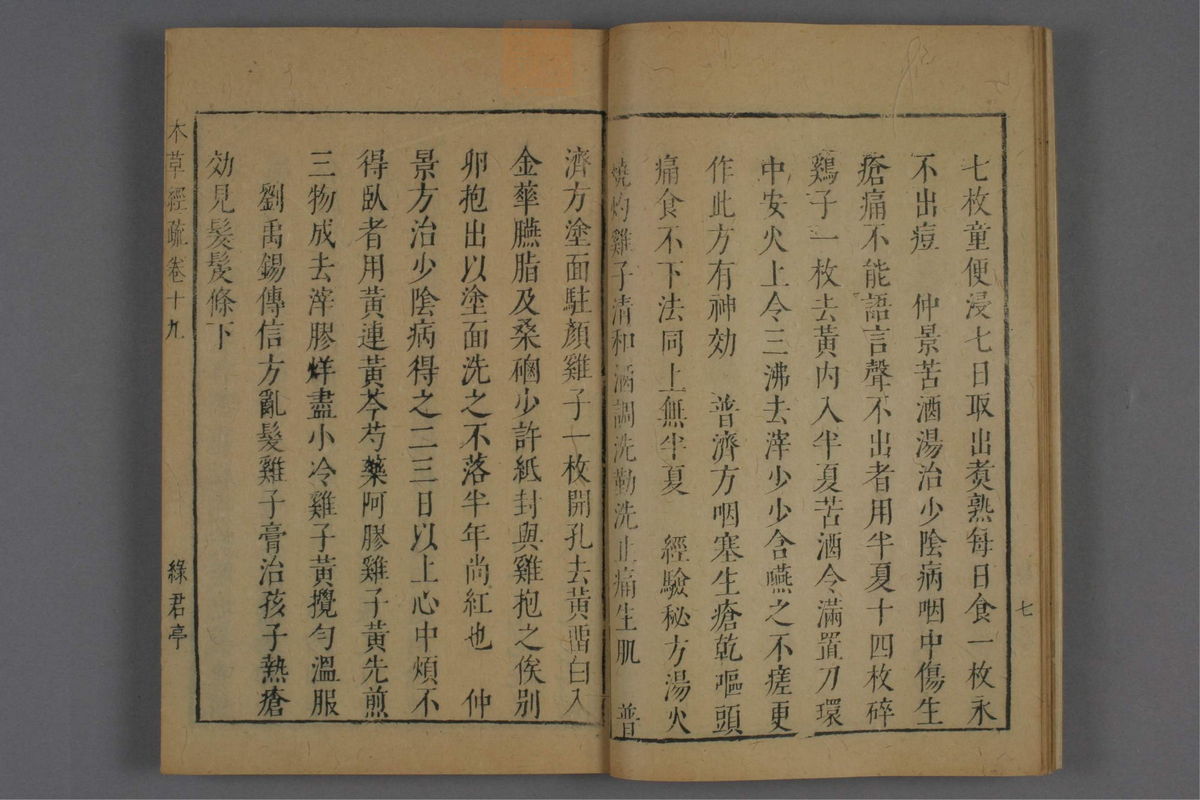 七枚童便浸七日取出煑熟每日食一枚永
不出痘　仲景苦酒湯治少陰病咽中傷生
瘡痛不能語言聲不出者用半夏十四枚碎
鷄子一枚去黃內入半夏苦酒令滿置刀環
中安火上令三沸去滓少少含嚥之不瘥更
作此方有神効　普濟方咽塞生瘡乾嘔頭
痛食不下法同上無半夏　經驗秘方湯火
燒灼雞子清和酒調洗勤洗止痛生肌　普
七
濟方塗面駐顏雞子一枚開孔去黃留白入
金華臙脂及桑硇少許紙封與雞抱之俟別
卵抱出以塗面洗之不落半年尚紅也　仲
景方治少陰病得之二三日以上心中煩不
得臥者用黃連黃芩芍藥阿膠雞子黃先煎
三物成去滓膠烊盡小冷雞子黃攪勻溫服
劉禹錫傳信方亂髮雞子膏治孩子熱瘡
効見髮髲條下
本草經疏卷十九
綠君亭